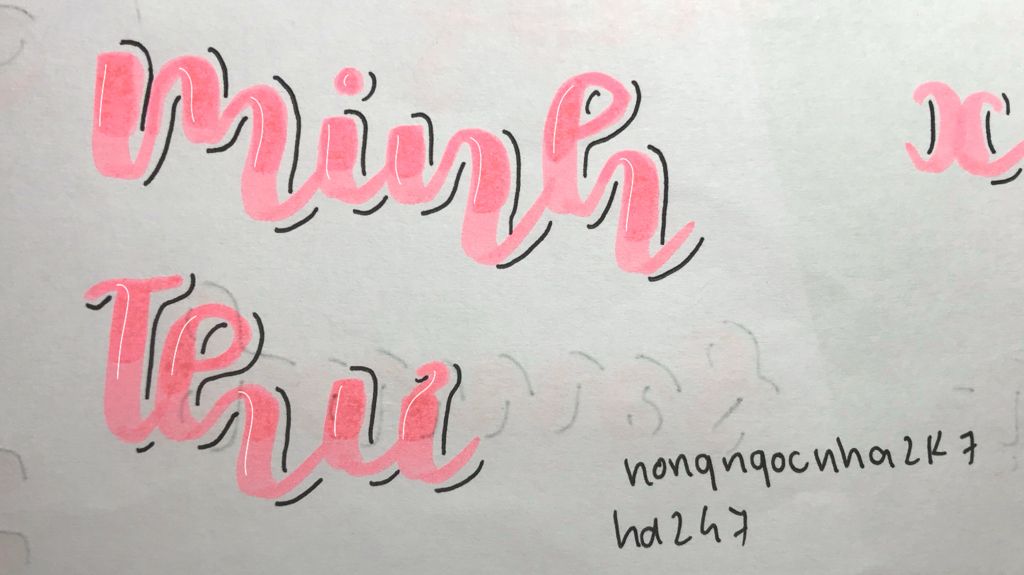 Minh x
Thư
nongngocnha2k7
hd247